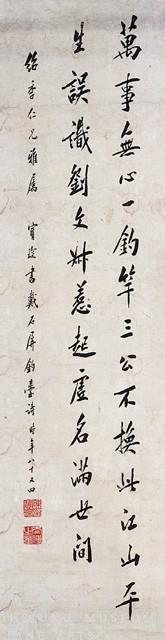 萬事無心一釣竿三公不換此江山平
生誤識劉文叔惹起虛名滿世間
季仁兄雅屬 寶 書戴石屏釣臺詩時年八十又四